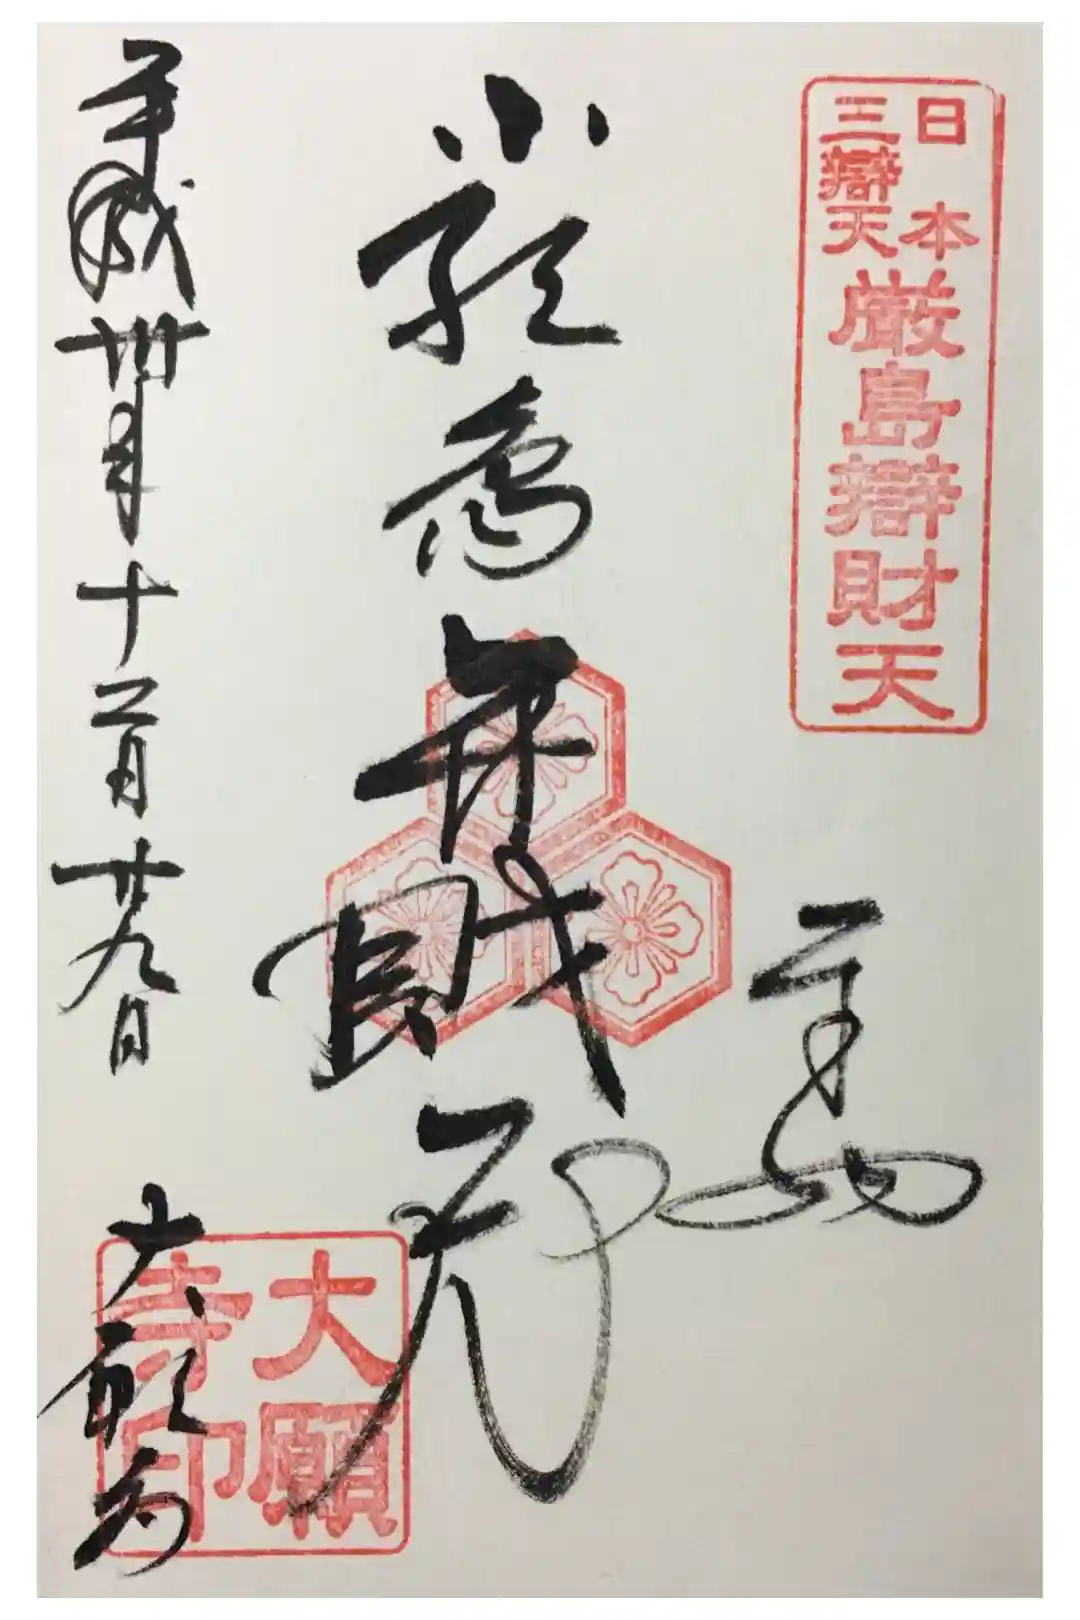 日本
三辯天
厳島辯財天
厳島弁財天
平成卅年十二月廿九日
大願寺
大願
寺印